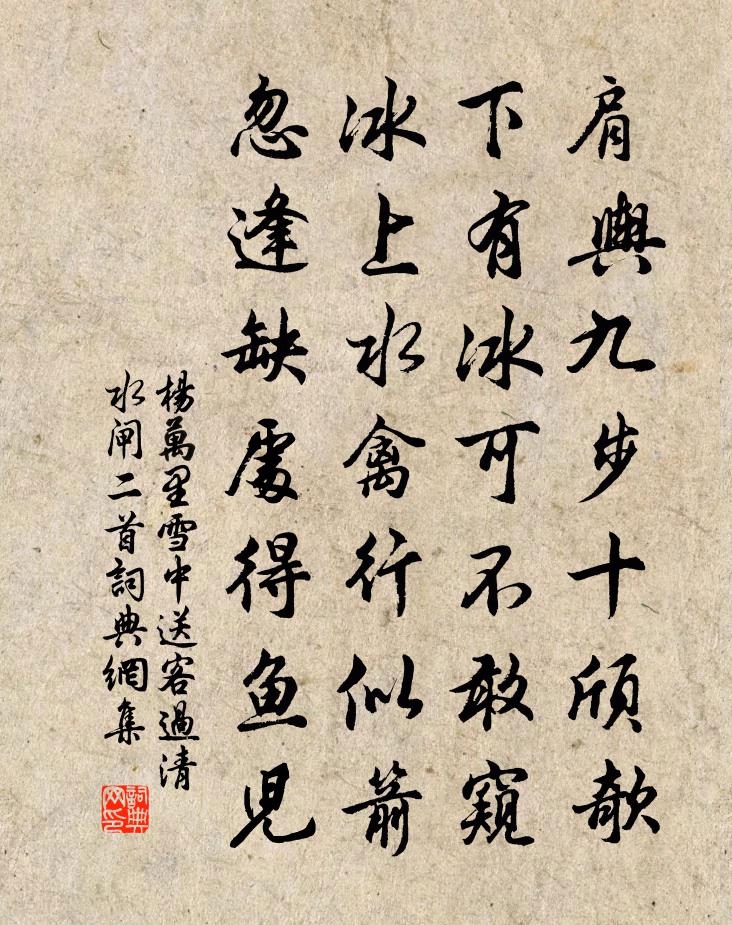 肩輿九步十頎欹
下有冰可不敢窺
冰上水禽行似箭
忽逢缺處得鱼児
楊萬里雪中送客過清
水闸二首詞典網集
詞典
网印